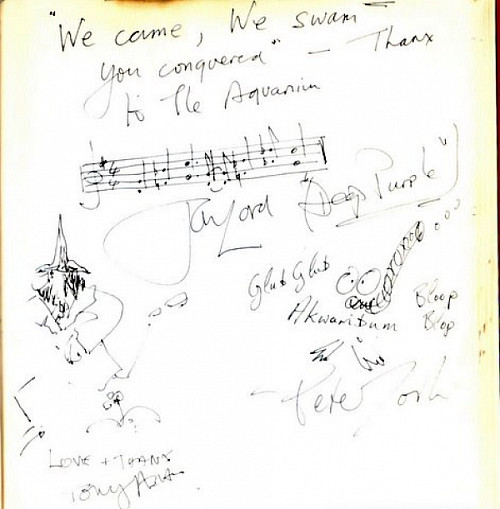 "We came, We swam
You conquered" — Thanx
to The Aquarium
Jon Lord "(Deep Purple")
Glub Glub
Akwaritum
Bloop
Blop
Pete
LOVE + THANX
Tony